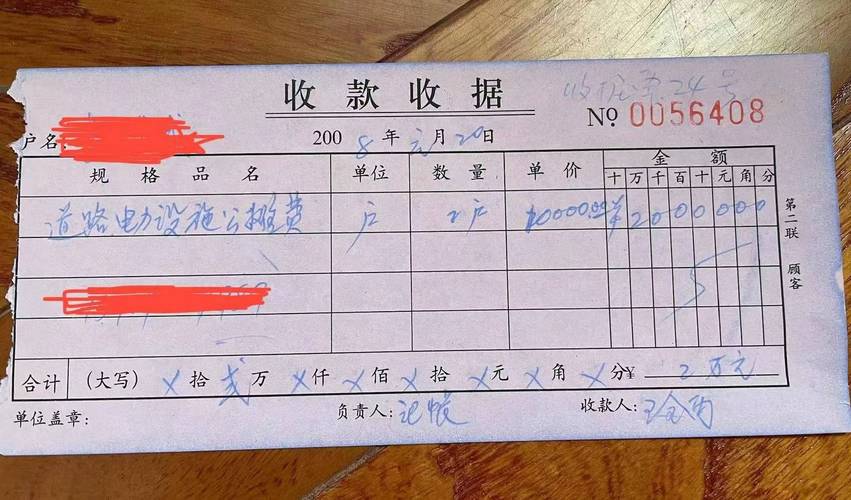 收款收据
收据第24号
№ 0056408
户名:
2008年元月20日
规格品名 单位 数量 单价 金额
十万千百十元角分
道路电力设施公摊费 户 2户 10000.00 ¥2000000
第二联 顾客
合计 (大写) X拾贰万X仟X佰X拾X元X角X分 ¥ 2万元
单位盖章: 负责人:记帐 收款人: